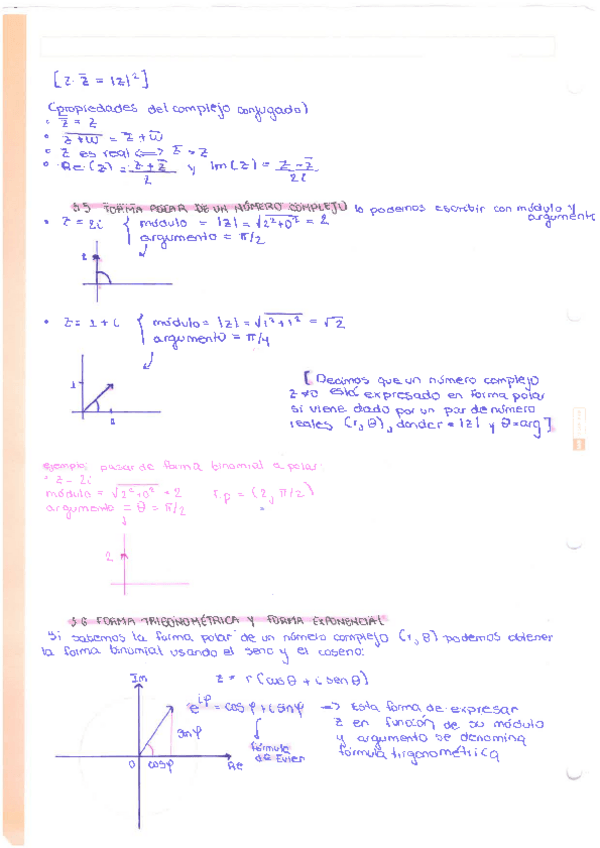 [z · z̄ = |z|²]
(propiedades del complejo conjugado)
• z̄ = z
• \overline{z+w} = z̄ + w̄
• z es real <=> z̄ = z
• Re(z) = (z + z̄)/2 y Im(z) = (z - z̄)/2i
3.5 FORMA POLAR DE UN NÚMERO COMPLEJO lo podemos escribir con módulo y argumento
• z = 2i { módulo = |z| = √(2²+0²) = 2
argumento = π/2
2
• z = 1 + i { módulo = |z| = √(1²+1²) = √2
argumento = π/4
1
1
[Decimos que un número complejo
z ≠ 0 está expresado en forma polar
si viene dado por un par de número
reales (r, θ), donde r = |z| y θ = arg]
ejemplo: pasar de forma binomial a polar:
• z = 2i
módulo = √(2²+0²) = 2 r.p = (2, π/2)
argumento = θ = π/2
2
3.6 FORMA TRIGONOMÉTRICA Y FORMA EXPONENCIAL
Si sabemos la forma polar de un número complejo (r, θ) podemos obtener
la forma binomial usando el seno y el coseno:
Im z = r(cosθ + i senθ)
e^{iφ} = cosφ + i sinφ => Esta forma de expresar
z en función de su módulo
y argumento se denomina
fórmula trigonométrica
sinφ
fórmula
de Euler
0 cosφ Re